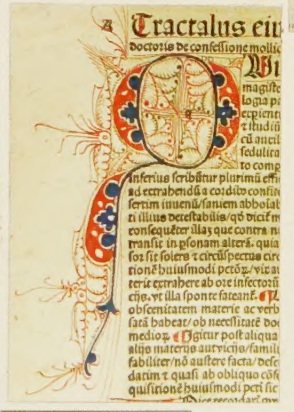 Tractatus eiu
doctoris de confessione mollic
magiste
logia p
et studiū
cū auxil
sedulita
to comp
inferius scribūtur plurimū effi
ad extrahendū a cordib⁹ confite
sertim iuvenū/saniem abhoĩal
ti illius detestabilis/
consequēter illas que contra n
transit in psonam alterā. quia
soz sit solers ⁊ circūspectus circ
tionē huiusmodi
terit extrahere ab ore infectorū
cijs. vt illa sponte fateant̄.
obscenitatem materie ac verb
satā habeat/ob necessitatē doc
medioꝝ igitur post aliqua
alijs materijs aut vicijs/famili
fabiliter/nō austere facta/desc
datim ⁊ quasi ab obliquo cōfe
quisitionē huiusmodi peti sic